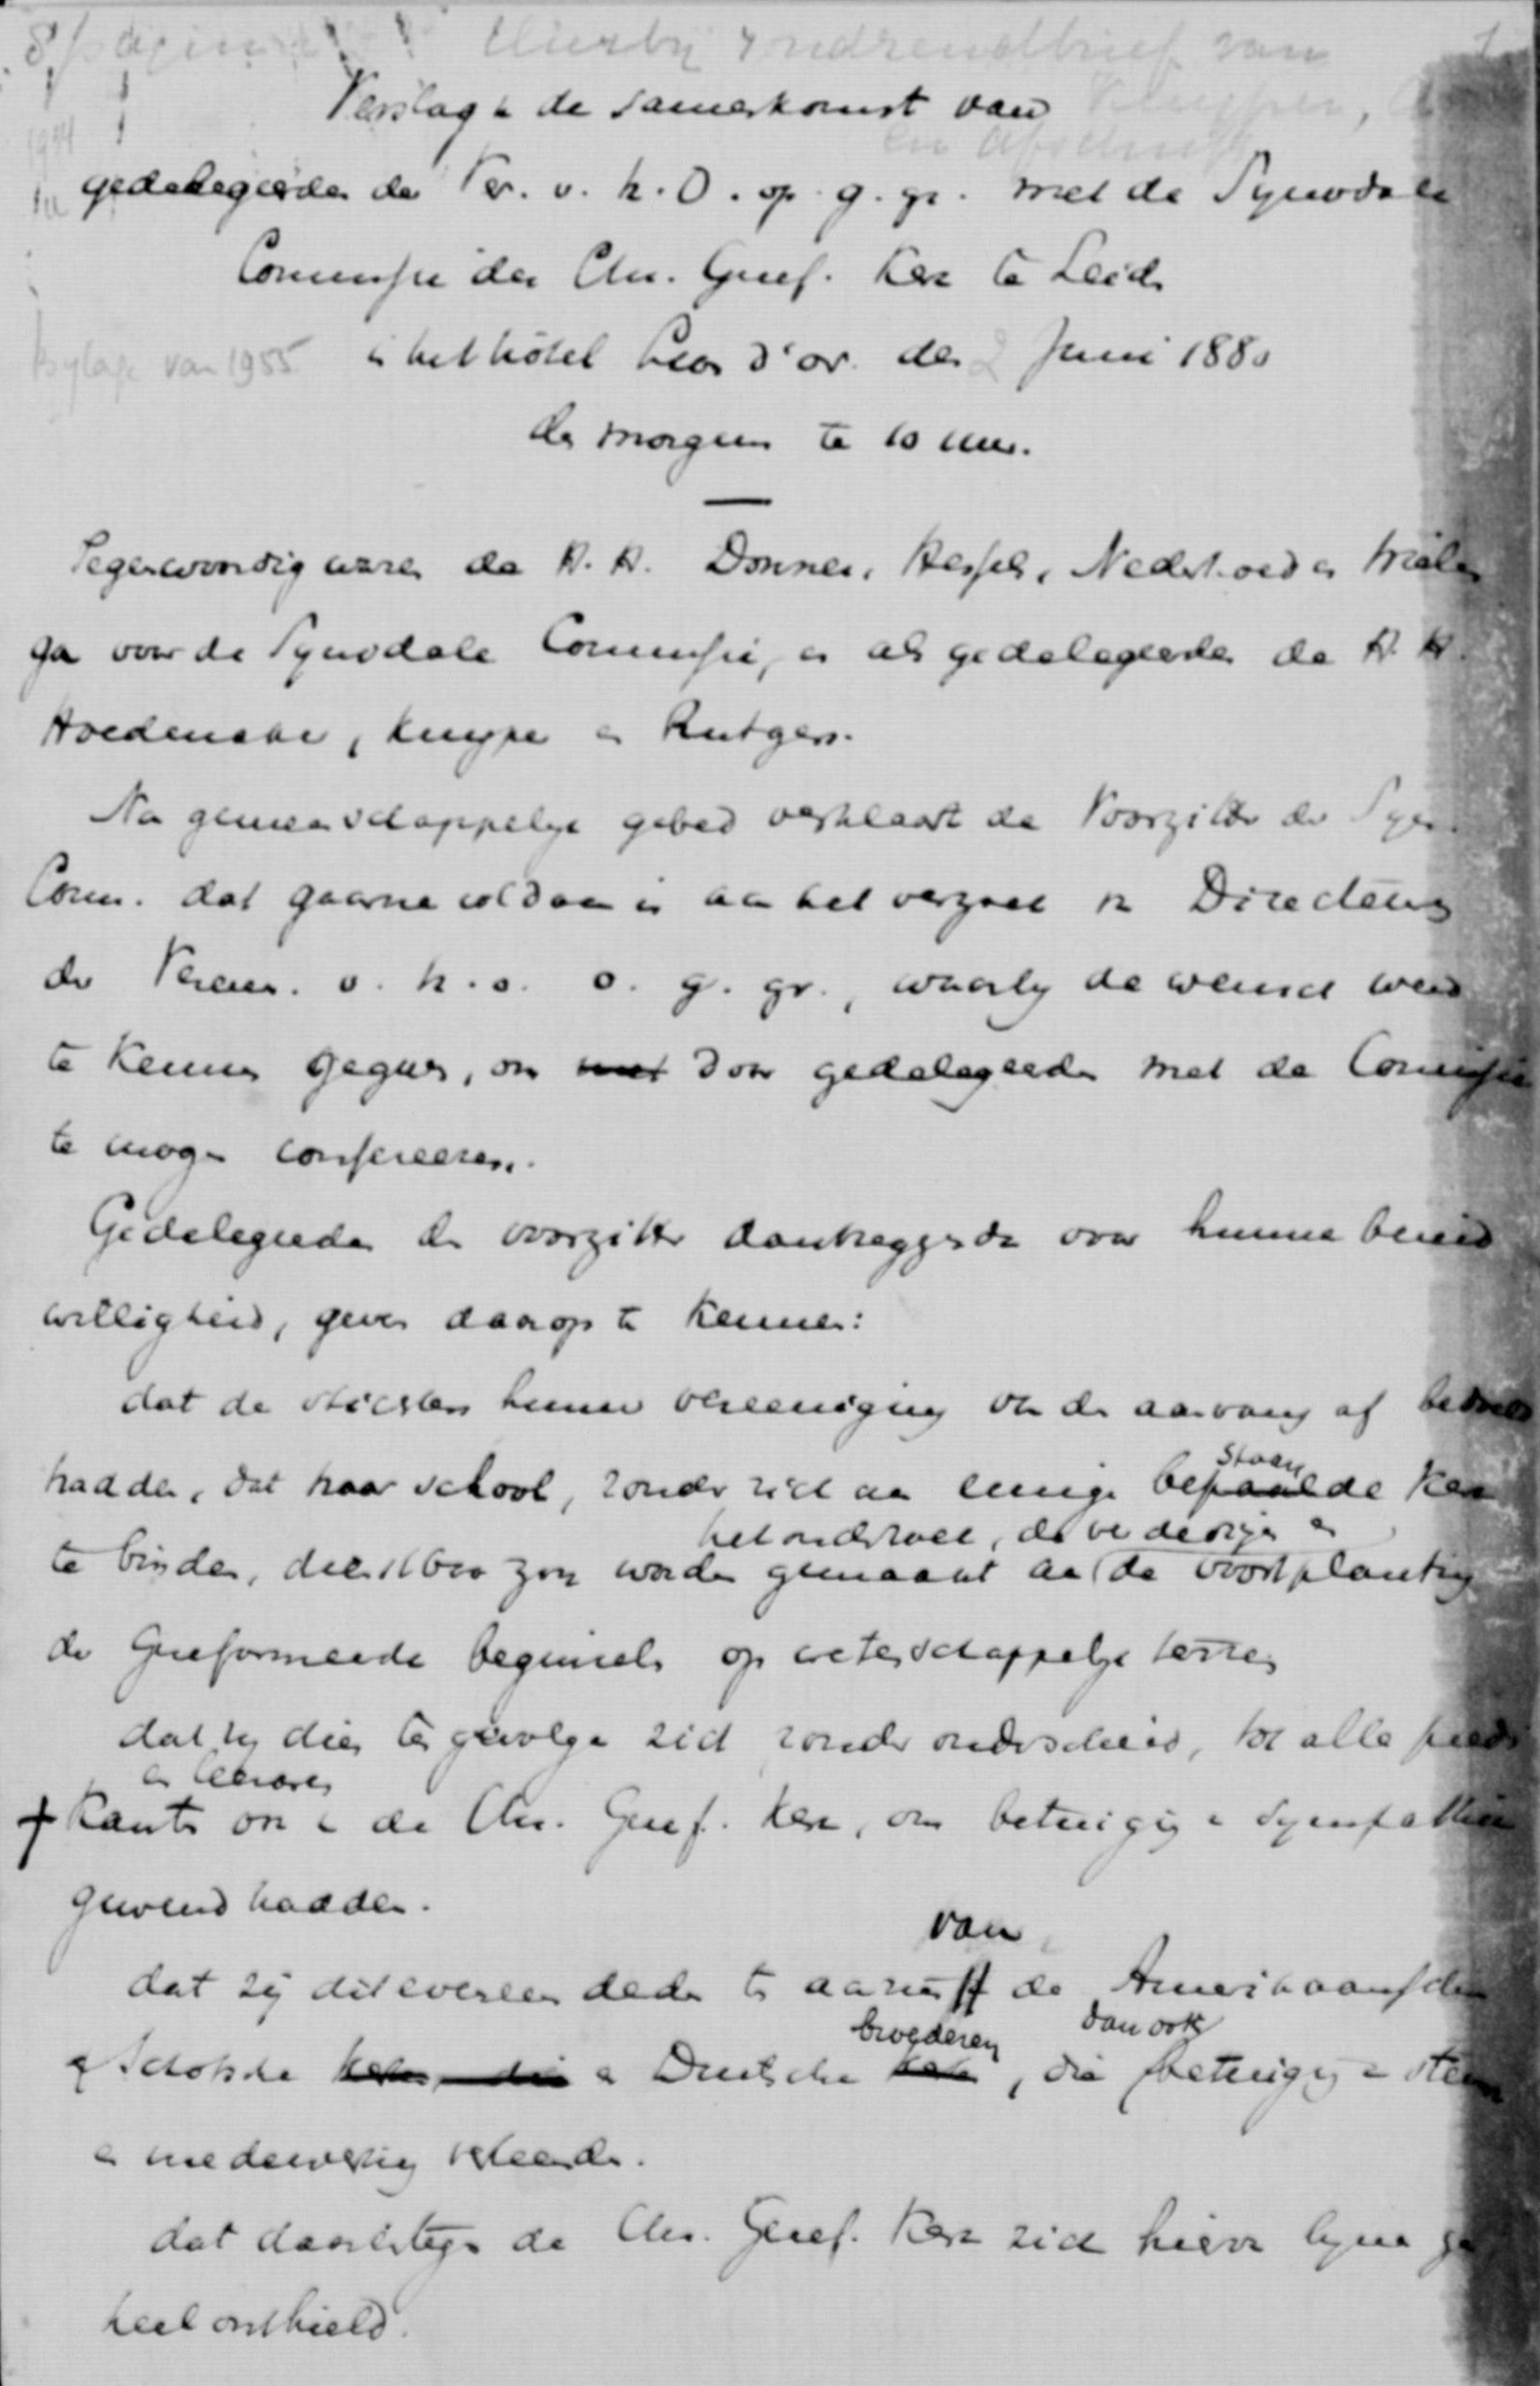 8 pagina's Hierbij rondzendbrief van 1
Verslag v de samenkomst van Kuyper,
en afschrift
gedelegeerden der Ver. v. h. O. op g. gr. met de Synodale
Commissie der Chr. Geref. Kerk te Leiden
bijlage van 1955 in het hôtel Lion d'or den 2 Juni 1880
des morgens te 10 uur.
Tegenwoordig waren de H.H. Donner, Hessels, Nederhoed en
ga voor de Synodale Commissie, en als gedelegeerden de H.H.
Hoedemaker, Kuyper en Rutgers.
Na gemeenschappelijk gebed verklaart de Voorzitter der Syn.
Comm. dat gaarne voldaan is aan het verzoek van Directeuren
der Vereen. v. h. o. o. g. gr., waarbij de wensch werd
te kennen gegeven, om met door gedelegeerden met de Commissie
te mogen confereeren.
Gedelegeerden den voorzitter dankzeggende voor hunne bereid
willigheid, geven daarop te kennen:
dat de stichters hunner vereeniging van den aanvang af bedoeld
hadden, dat haar school, zonder zich aan eenige bepaalde staande Kerk
te binden, dienstbaar zou worden gemaakt aan het onderzoek, de verdediging en de voortplanting
der Gereformeerde beginselen op wetenschappelijk terrein
dat zij dien ten gevolge zich zonder onderscheid, tot alle predi
kanten en leeraren ook in de Chr. Geref. Kerk, om betuiging van sympathie
gewend hadden.
dat zij dit eveneens deden ten aanzien van de Amerikaansche
en Schotsche en Duitsche broederen, die dan ook betuiging van steun
en medewerking verleenden.
dat daarentegen de Chr. Geref. Kerk zich hiervan bijna ge
heel onthield.